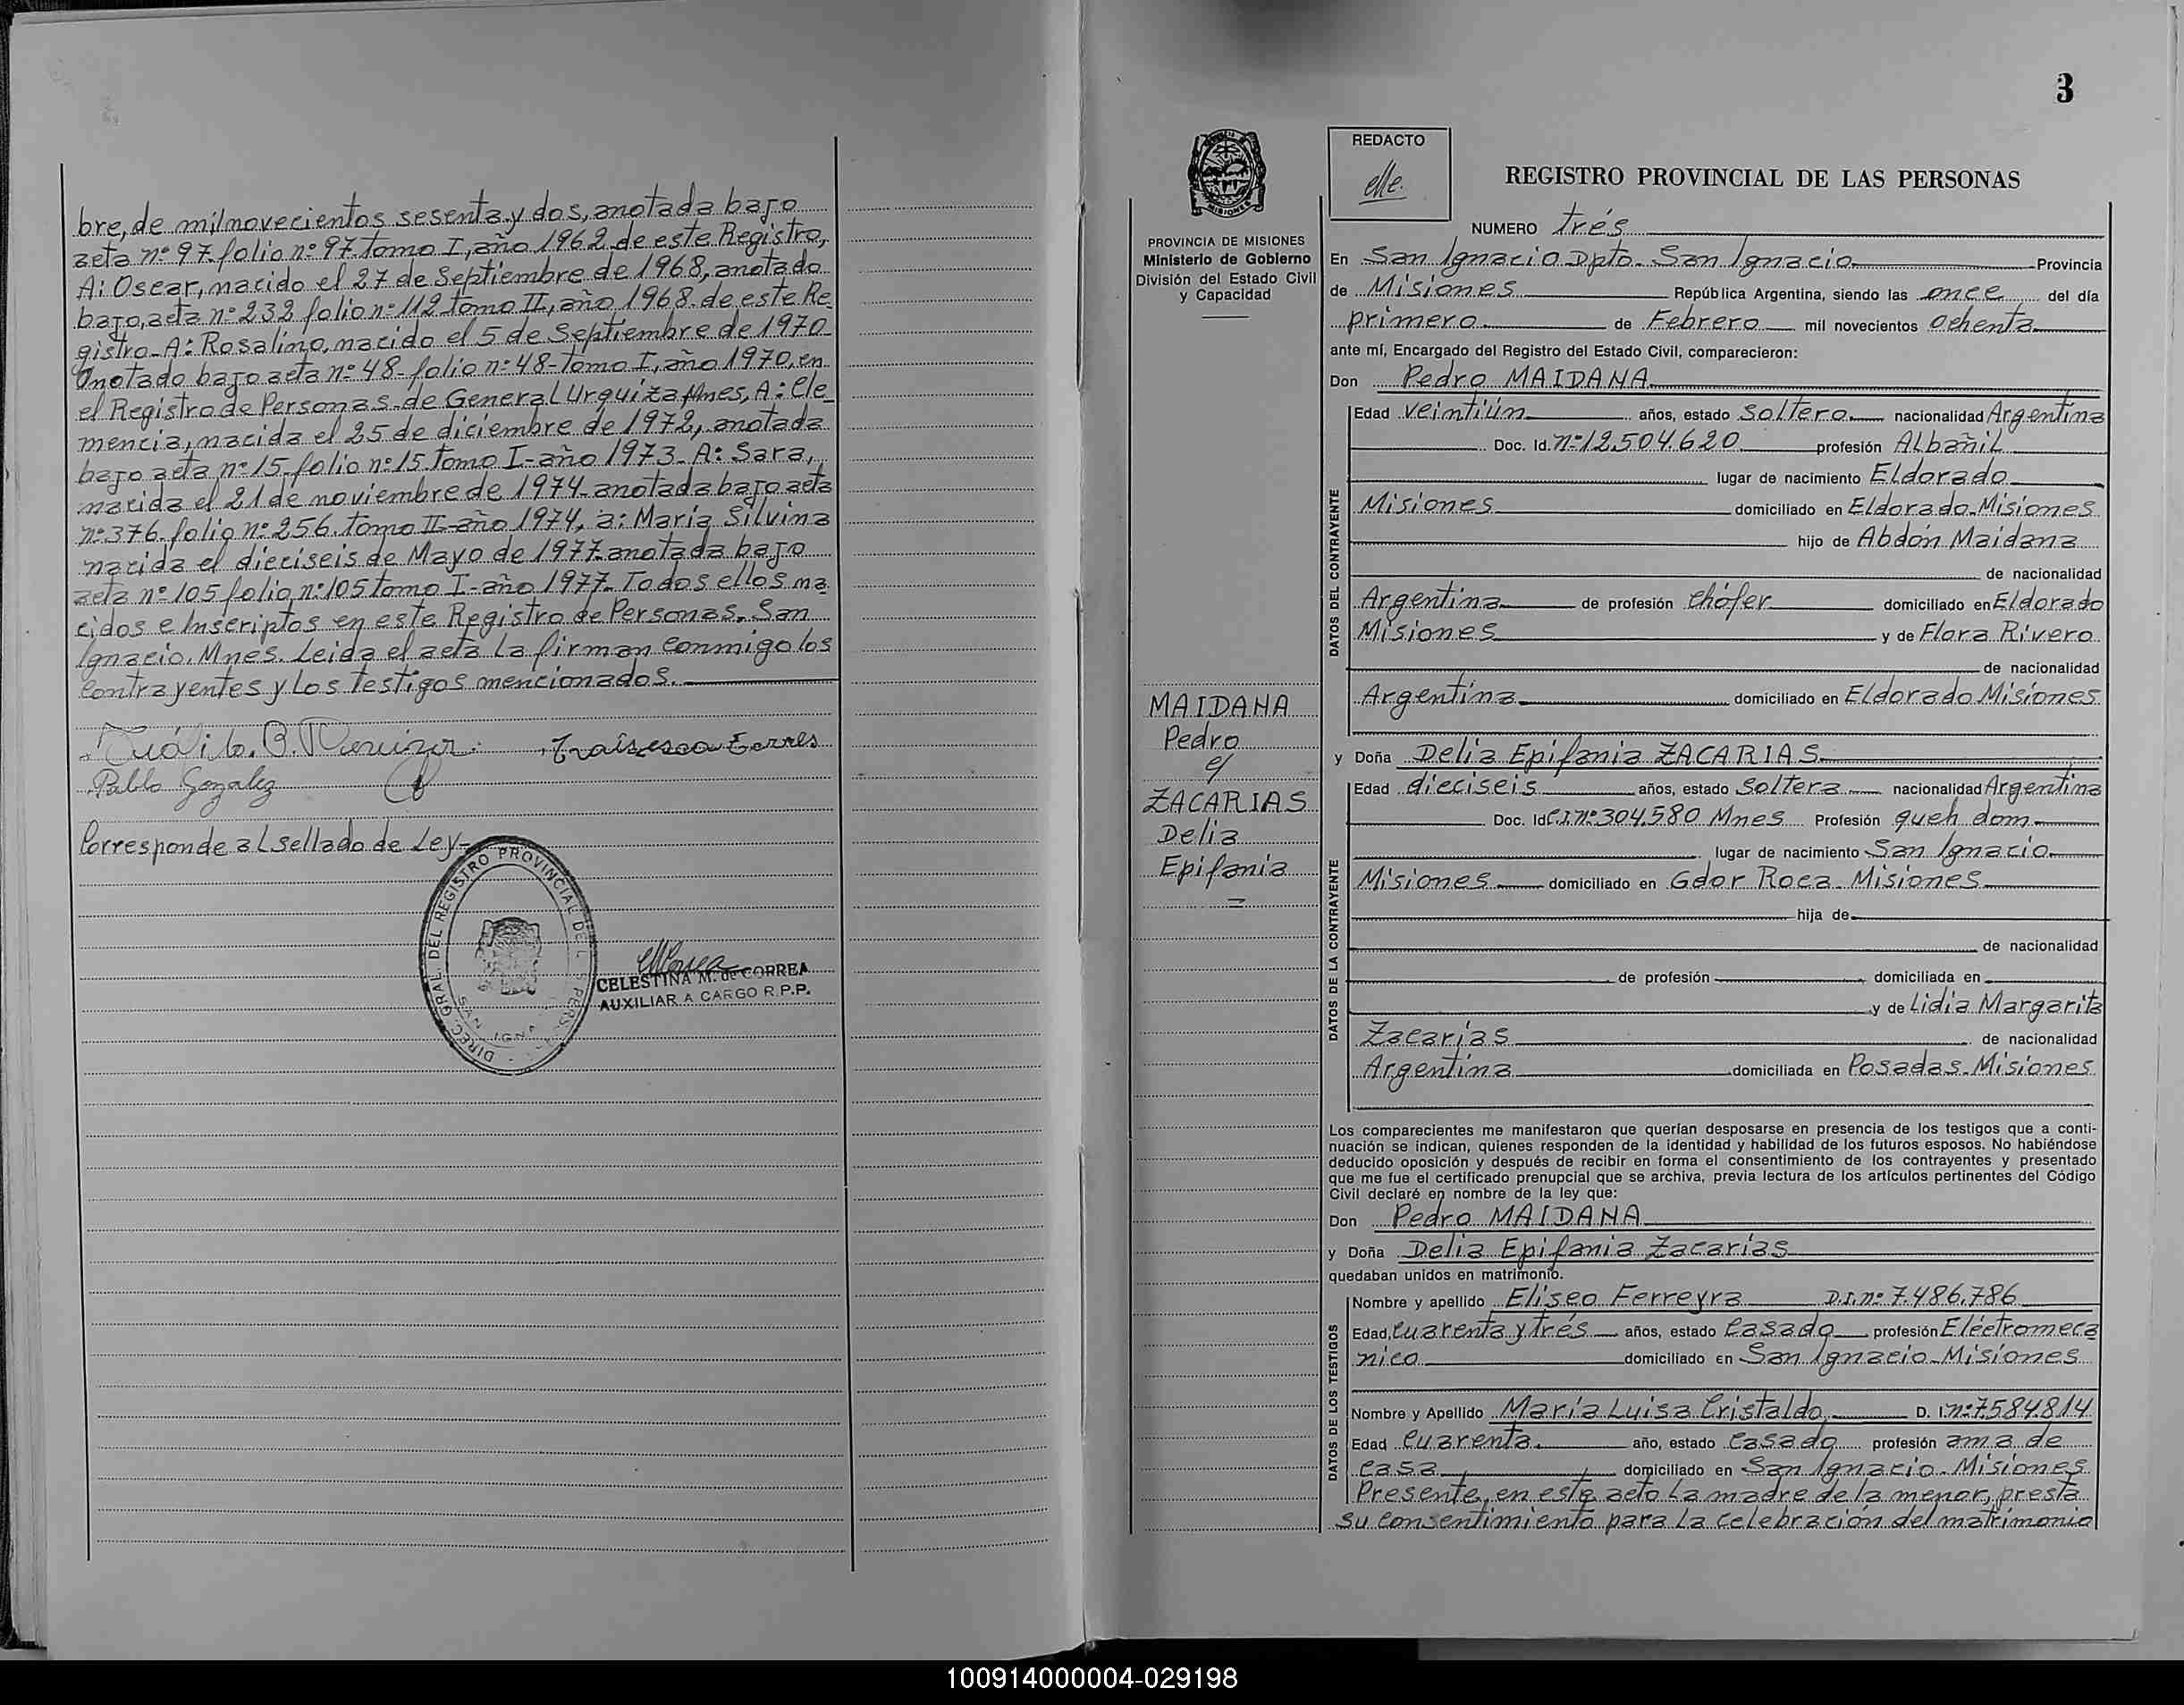 bre, de mil novecientos sesenta y dos, anotada bajo
acta nº 97 folio nº 97 tomo I, año 1962 de este Registro,
A: Oscar, nacido el 27 de Septiembre de 1968, anotado
bajo, acta nº 232 folio nº 112 tomo II, año 1968 de este Re
gistro - A: Rosalino, nacido el 5 de Septiembre de 1970
Anotado bajo acta nº 48 - folio nº 48 - tomo I, año 1970, en
el Registro de Personas de General Urquiza Mnes, A: Cle
mencia, nacida el 25 de diciembre de 1972, anotada
bajo acta nº 15 - folio nº 15 tomo I - año 1973 - A: Sara,
nacida el 21 de noviembre de 1974 - anotada bajo acta
nº 376 folio nº 256 tomo II - año 1974, a: María Silvina
nacida el dieciseis de Mayo de 1977 anotada bajo
acta nº 105 folio nº 105 tomo I - año 1977 - Todos ellos na
cidos e Inscriptos en este Registro de Personas. San
Ignacio. Mnes. Leida el acta la firman conmigo los
contrayentes y los testigos mencionados.
Pablo Gozalez
Corresponde al sellado de Ley-
DIREC. GRAL. DEL REGISTRO PROVINCIAL DE L PERS.
SAN IGNA
CELESTINA M. de CORREA
AUXILIAR A CARGO R.P.P.
3
REDACTO
REGISTRO PROVINCIAL DE LAS PERSONAS
MISIONES
PROVINCIA DE MISIONES
Ministerio de Gobierno
División del Estado Civil
y Capacidad
MAIDANA
Pedro
c/
ZACARIAS
Delia
Epifania
=
NUMERO trés
En San Ignacio Dpto. San Ignacio Provincia
de Misiones República Argentina, siendo las once del día
primero de Febrero mil novecientos ochenta
ante mí, Encargado del Registro del Estado Civil, comparecieron:
Don Pedro MAIDANA
DATOS DEL CONTRAYENTE
Edad veintiún años, estado soltero nacionalidad Argentina
Doc. Id. nº 12.504.620 profesión Albañil
lugar de nacimiento Eldorado
Misiones domiciliado en Eldorado - Misiones
hijo de Abdón Maidana
de nacionalidad
Argentina de profesión chófer domiciliado en Eldorado
Misiones y de Flora Rivero
de nacionalidad
Argentina domiciliado en Eldorado Misiones
y Doña Delia Epifania ZACARIAS
DATOS DE LA CONTRAYENTE
Edad dieciseis años, estado soltera nacionalidad Argentina
Doc. Id C.I. nº 304.580 Mnes Profesión queh dom
lugar de nacimiento San Ignacio
Misiones domiciliado en Gdor Roca. Misiones
hija de
de nacionalidad
de profesión domiciliada en
y de Lidia Margarita
Zacarías de nacionalidad
Argentina domiciliada en Posadas - Misiones
Los comparecientes me manifestaron que querían desposarse en presencia de los testigos que a conti-
nuación se indican, quienes responden de la identidad y habilidad de los futuros esposos. No habiéndose
deducido oposición y después de recibir en forma el consentimiento de los contrayentes y presentado
que me fue el certificado prenupcial que se archiva, previa lectura de los artículos pertinentes del Código
Civil declaré en nombre de la ley que:
Don Pedro MAIDANA
y Doña Delia Epifania Zacarías
quedaban unidos en matrimonio.
DATOS DE LOS TESTIGOS
Nombre y apellido Eliseo Ferreyra D.I. nº 7.486.786
Edad, cuarenta y trés años, estado casado profesión Eléctromeca
nico domiciliado en San Ignacio - Misiones
Nombre y Apellido María Luisa Cristaldo D. I. nº 7.584.814
Edad cuarenta año, estado casado profesión ama de
casa domiciliado en San Ignacio - Misiones
Presente, en este acto la madre de la menor, presta
su consentimiento para la celebración del matrimonio
100914000004-029198